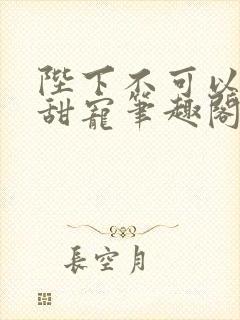 陛下不可以
甜寵筆趣閣
長空月